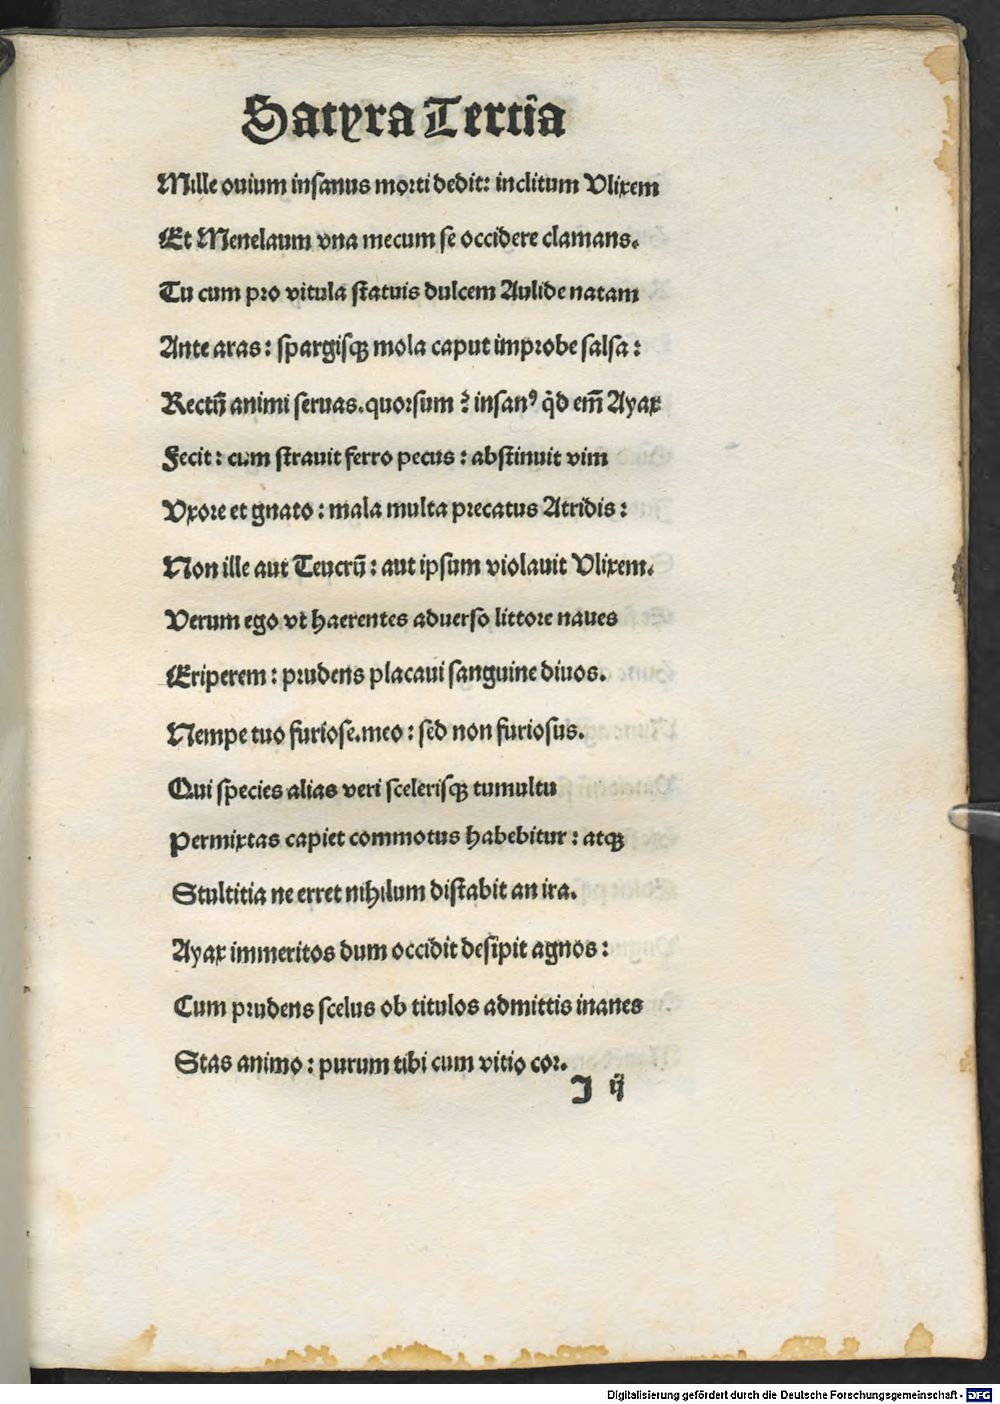 Satyra Tertia
Mille ouium insanus morti dedit: inclitum Vlixem
Et Menelaum vna mecum se occidere clamans.
Tu cum pro vitula statuis dulcem Aulide natam
Ante aras: spargisqꝫ mola caput improbe salsa:
Rectū animi seruas. quorsum? insanꝰ qͥd em̄ Ayax
Fecit: cum strauit ferro pecus: abstinuit vim
Vxore et gnato: mala multa precatus Atridis:
Non ille aut Teucrū: aut ipsum violauit Vlixem.
Verum ego vt haerentes aduerso littore naues
Eriperem: prudens placaui sanguine diuos.
Nempe tuo furiose. meo: sed non furiosus.
Qui species alias veri scelerisqꝫ tumultu
Permixtas capiet commotus habebitur: atqꝫ
Stultitia ne erret nihilum distabit an ira.
Ayax immeritos dum occidit desipit agnos:
Cum prudens scelus ob titulos admittis inanes
Stas animo: purum tibi cum vitio cor.
I ij
Digitalisierung gefördert durch die Deutsche Forschungsgemeinschaft - DFG